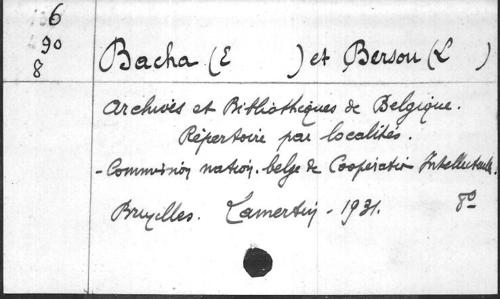 6
90
8
Bacha (E ) et Berson (L )
Archives et Bibliothèques de Belgique.
Répertoire par localités.
- Commission nation. belge de Coopération Intellectuelle.
Bruxelles. Lamertin - 1931. 8º